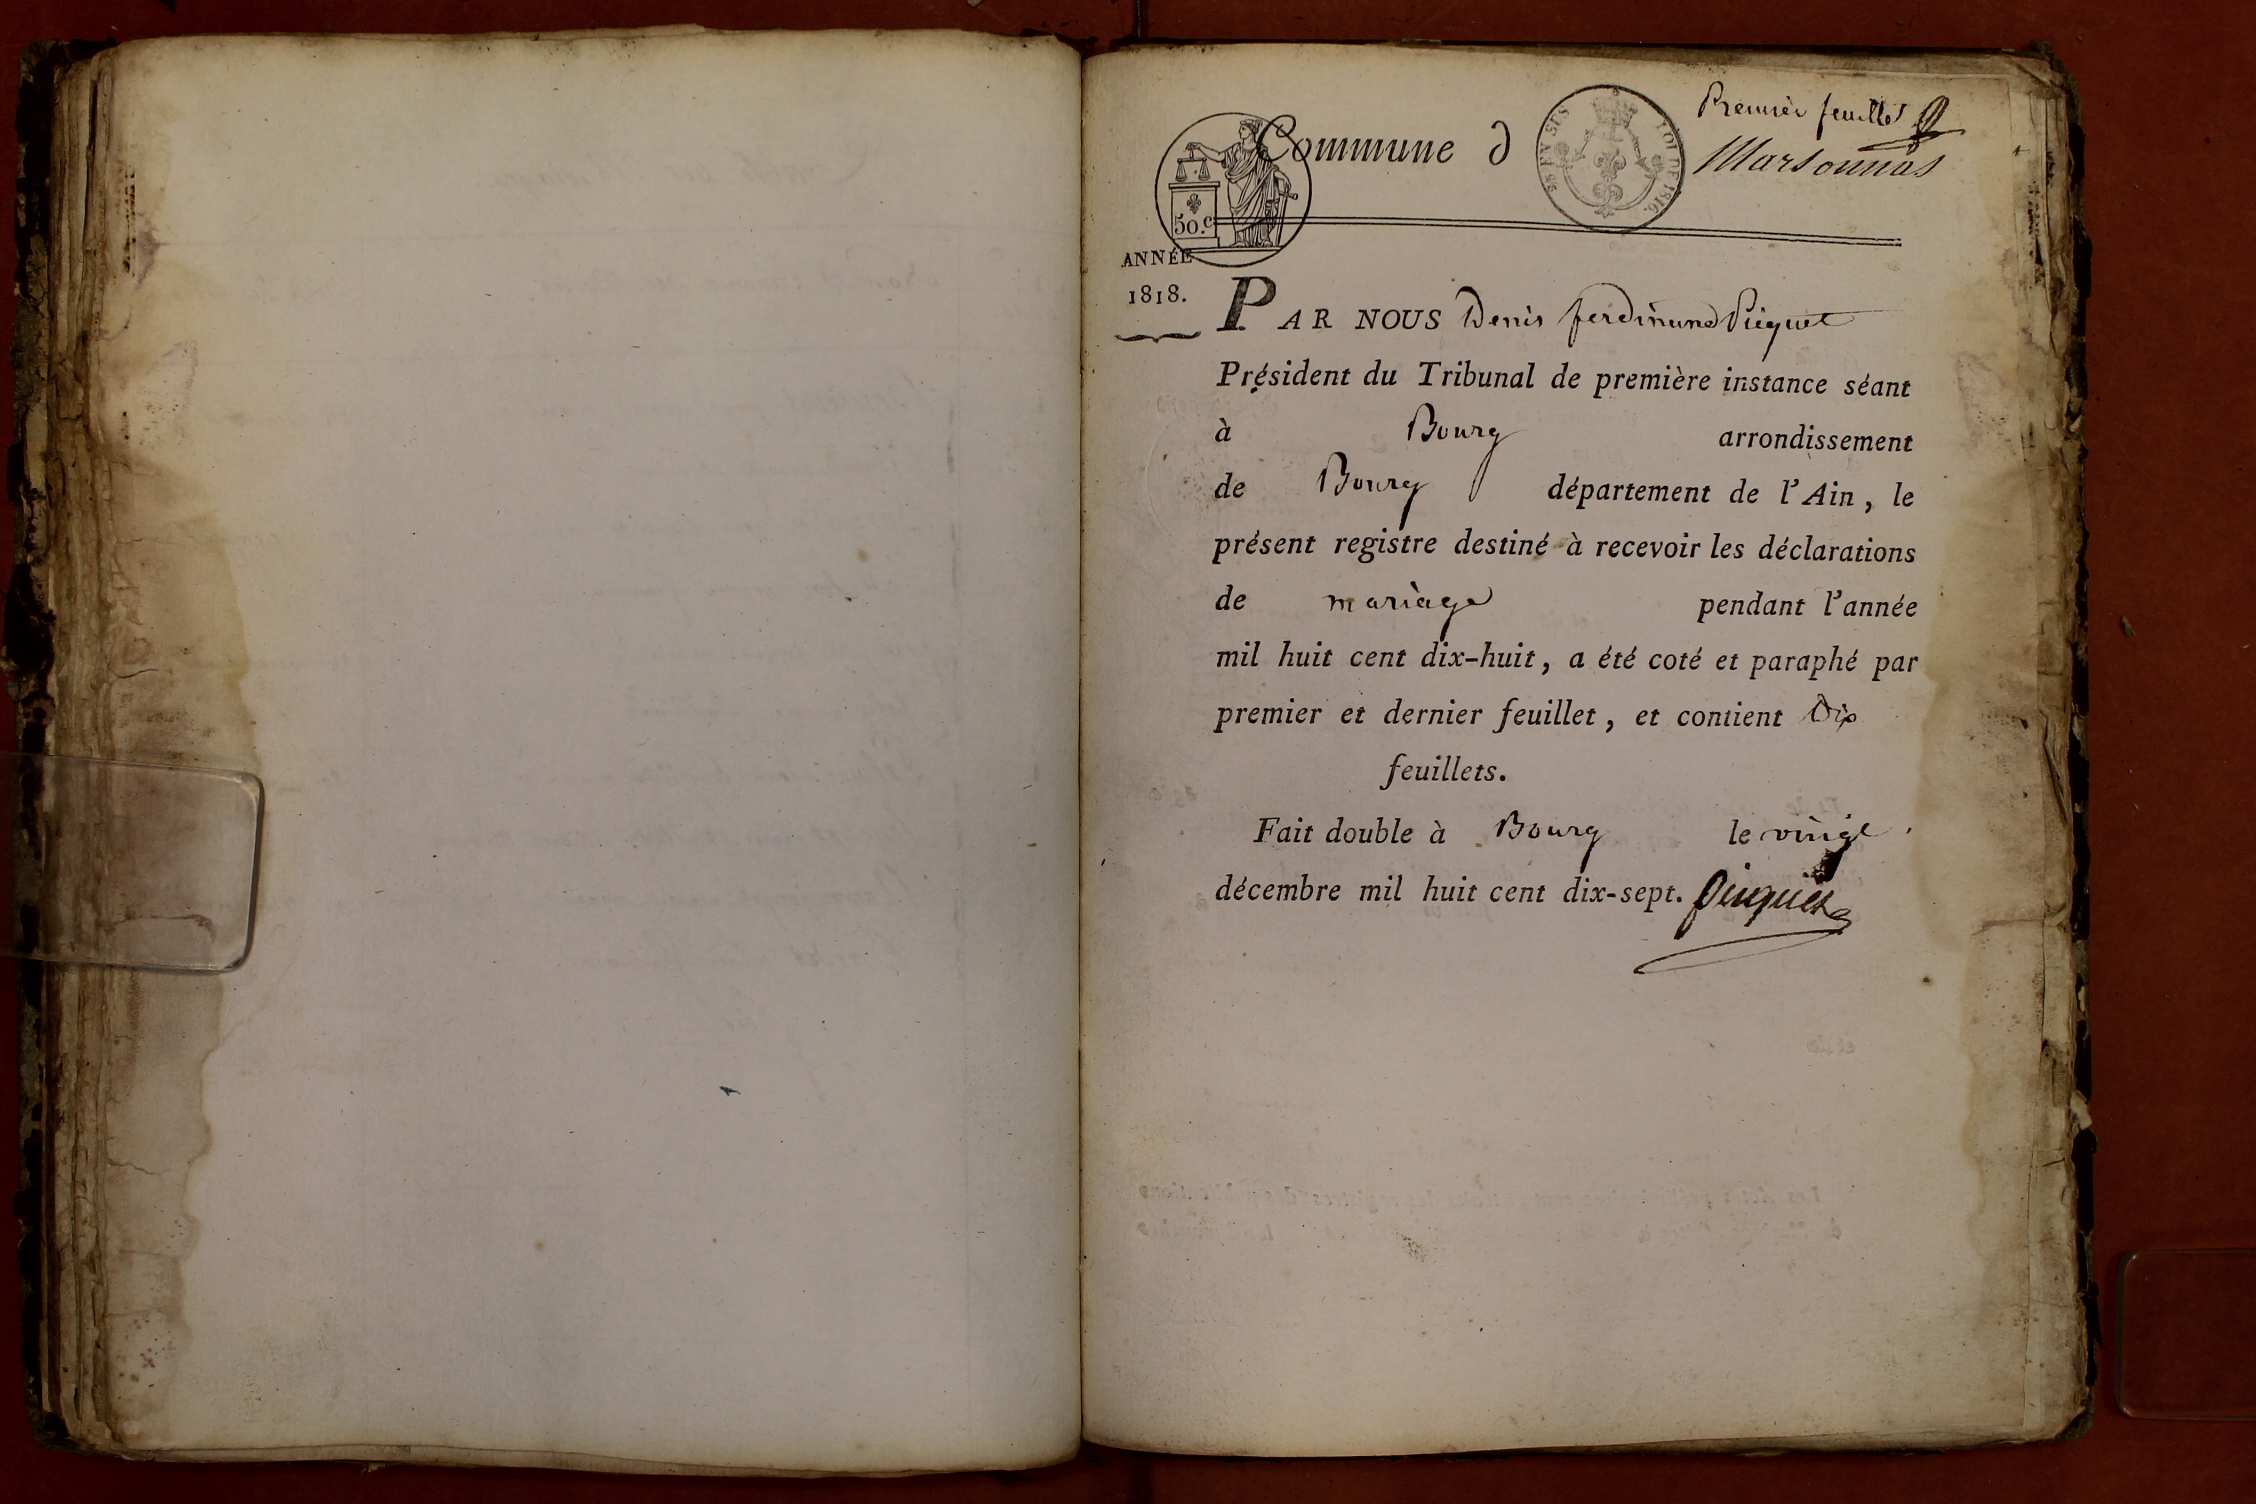 Premier feuillet
Commune d Marsonnas
50.c
LOI DE 1816.
ANNÉE
1818.
PAR NOUS Denis ferdinand Picquet
Président du Tribunal de première instance séant
à Bourg arrondissement
de Bourg département de l'Ain, le
présent registre destiné à recevoir les déclarations
de mariage pendant l'année
mil huit cent dix-huit, a été coté et paraphé par
premier et dernier feuillet, et contient Dix
feuillets.
Fait double à Bourg le vingt
décembre mil huit cent dix-sept. Picquet